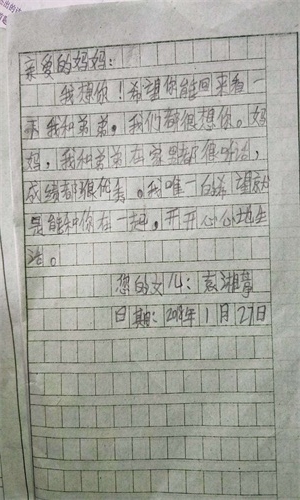 亲爱的妈妈：
我想你！希望你能回来看一
下我和弟弟，我们都很想你。妈
妈，我和弟弟在家里都很听话，
成绩都很优秀。我唯一的希望就
是能和你在一起，开开心心地生
活。
您的女儿：袁湘
日期：2018年1月27日